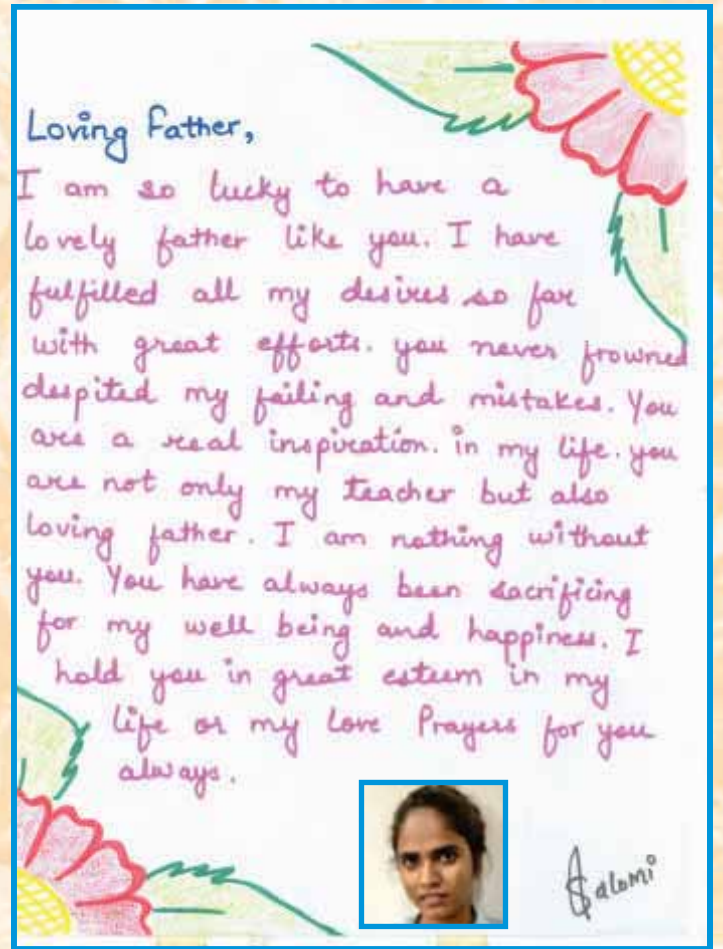 Loving Father,
I am so lucky to have a
lovely father like you. I have
fulfilled all my desires so far
with great efforts. you never frowned
despited my failing and mistakes. You
are a real inspiration. in my life. you
are not only my teacher but also
loving father. I am nothing without
you. You have always been sacrificing
for my well being and happiness. I
hold you in great esteem in my
life or my Love Prayers for you
always.
Salomi